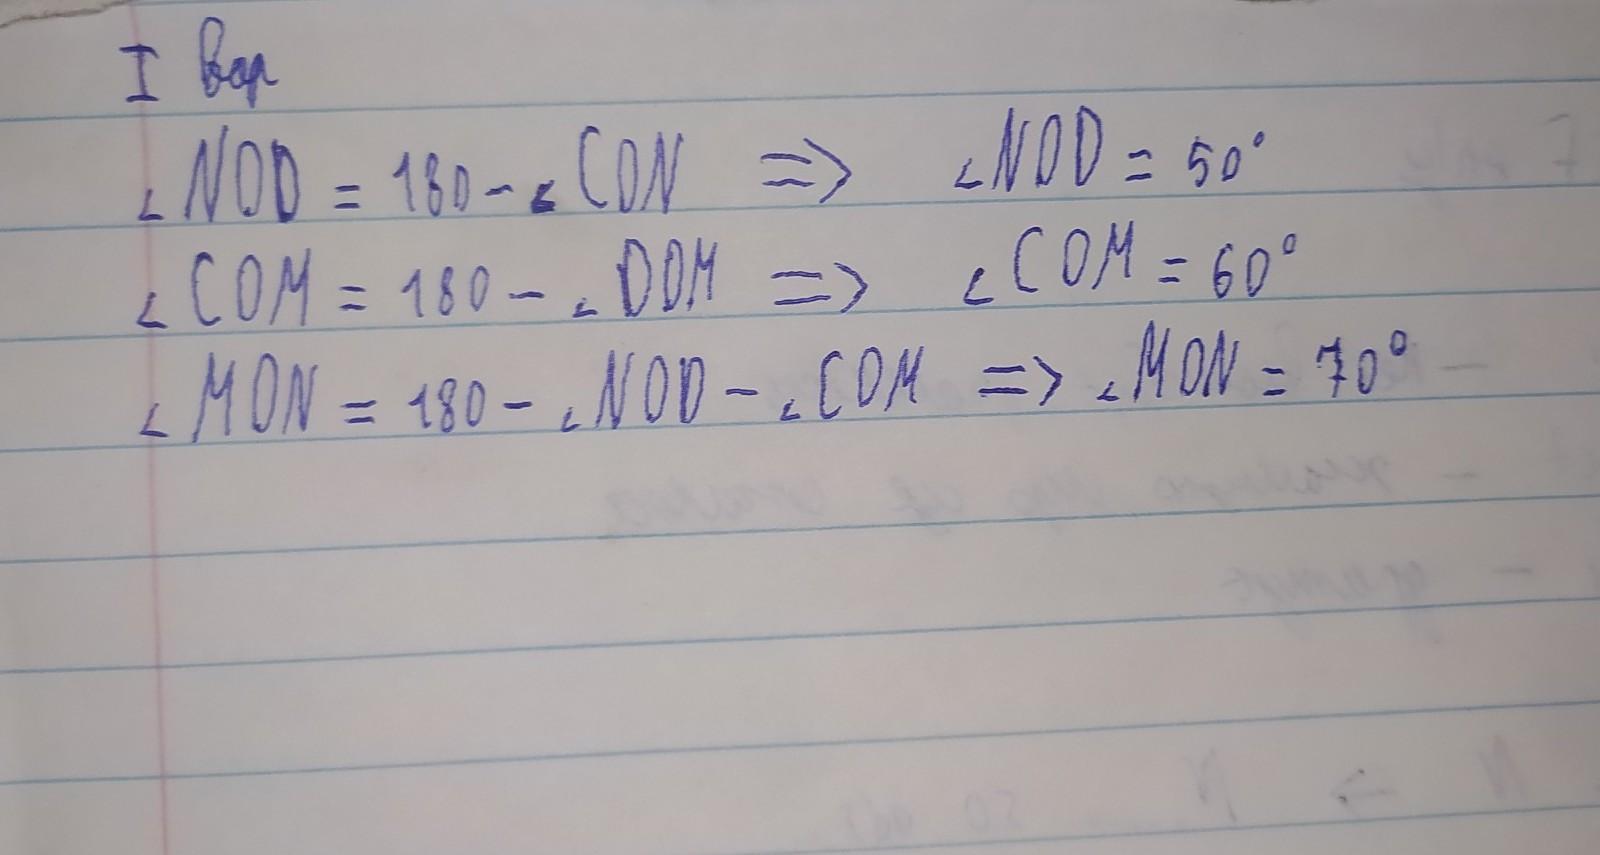 I вар
∠NOD = 180 - ∠CON => ∠NOD = 50°
∠COM = 180 - ∠DOM => ∠COM = 60°
∠MON = 180 - ∠NOD - ∠COM => ∠MON = 70°